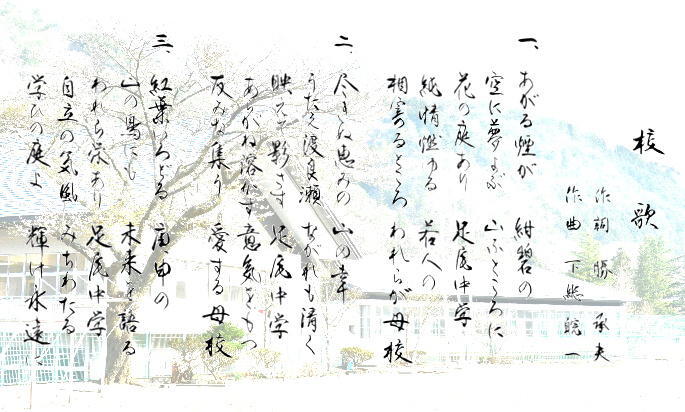 校歌
作詞 勝 承夫
作曲 下総 皖一
一、 あがる煙が 紺碧の
空に夢よぶ 山ふところに
花の庭あり 足尾中学
純情燃ゆる 若人の
相寄るところ われらが母校
二、 尽きぬ恵みの 山の幸
うたえ渡良瀬 ながれも清く
映えて影さす 足尾中学
あかがね溶かす 意気をもつ
友みな集う 愛する母校
三、 紅葉いろどる 庚申の
山の鳥にも 未来を語る
われら栄あり 足尾中学
自立の気風 みちわたる
学びの庭よ 輝け永遠に